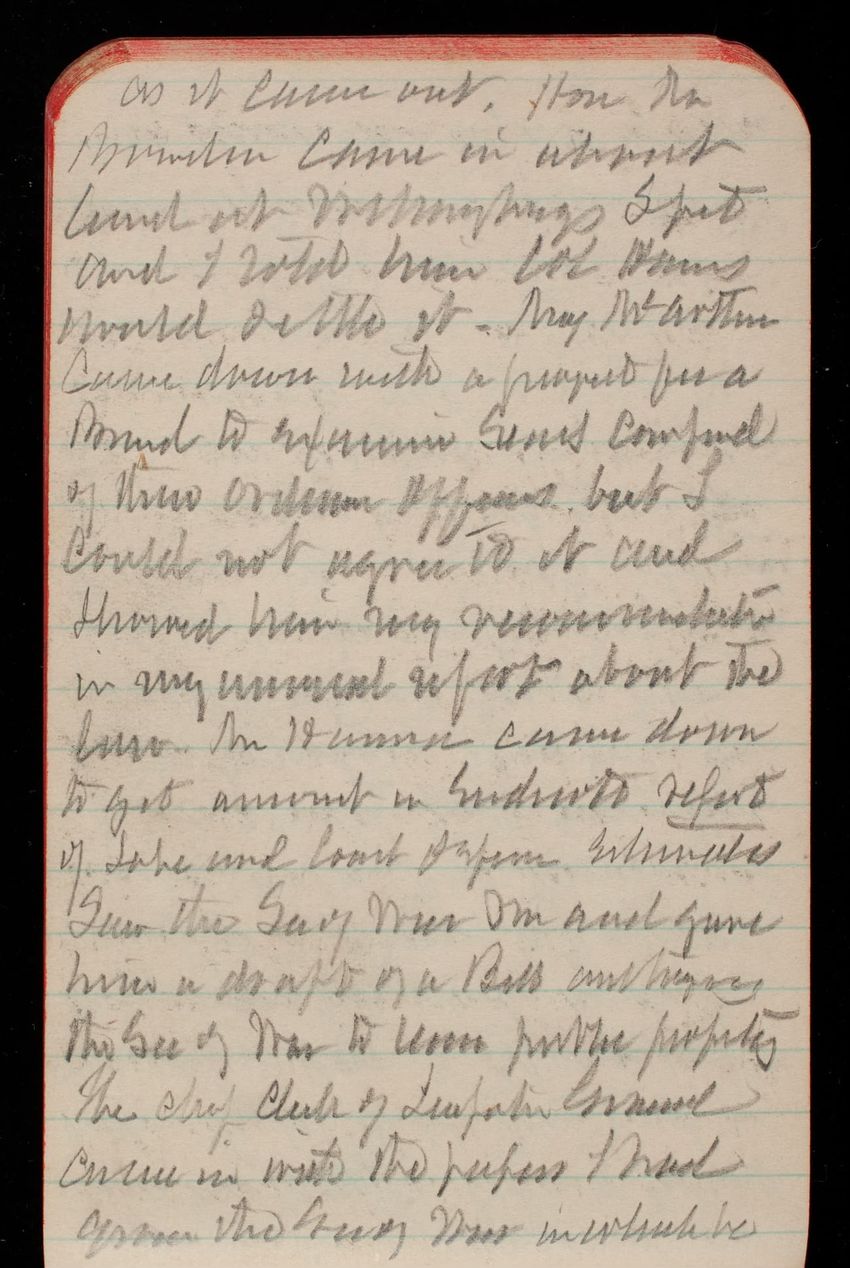 as it came out. Hon Mr
came in about
land at Spit
and I told him Col
would settle it - Maj McArthur
came down with a project for a
Board to examine Guns composed
of three Ordnance Officers but I
could not agree to it and
showed him my recommendation
in my annual report about the
law. Mr Hanna came down
to get amount in Endicott report
of Lake and Coast Defense Estimates
Saw the Sec of War and gave
him a draft of a Bill authorizing
the Sec of War to loan public property
The chief Clerk of Inspector General
came in with the papers I had
given the Sec of War in which he